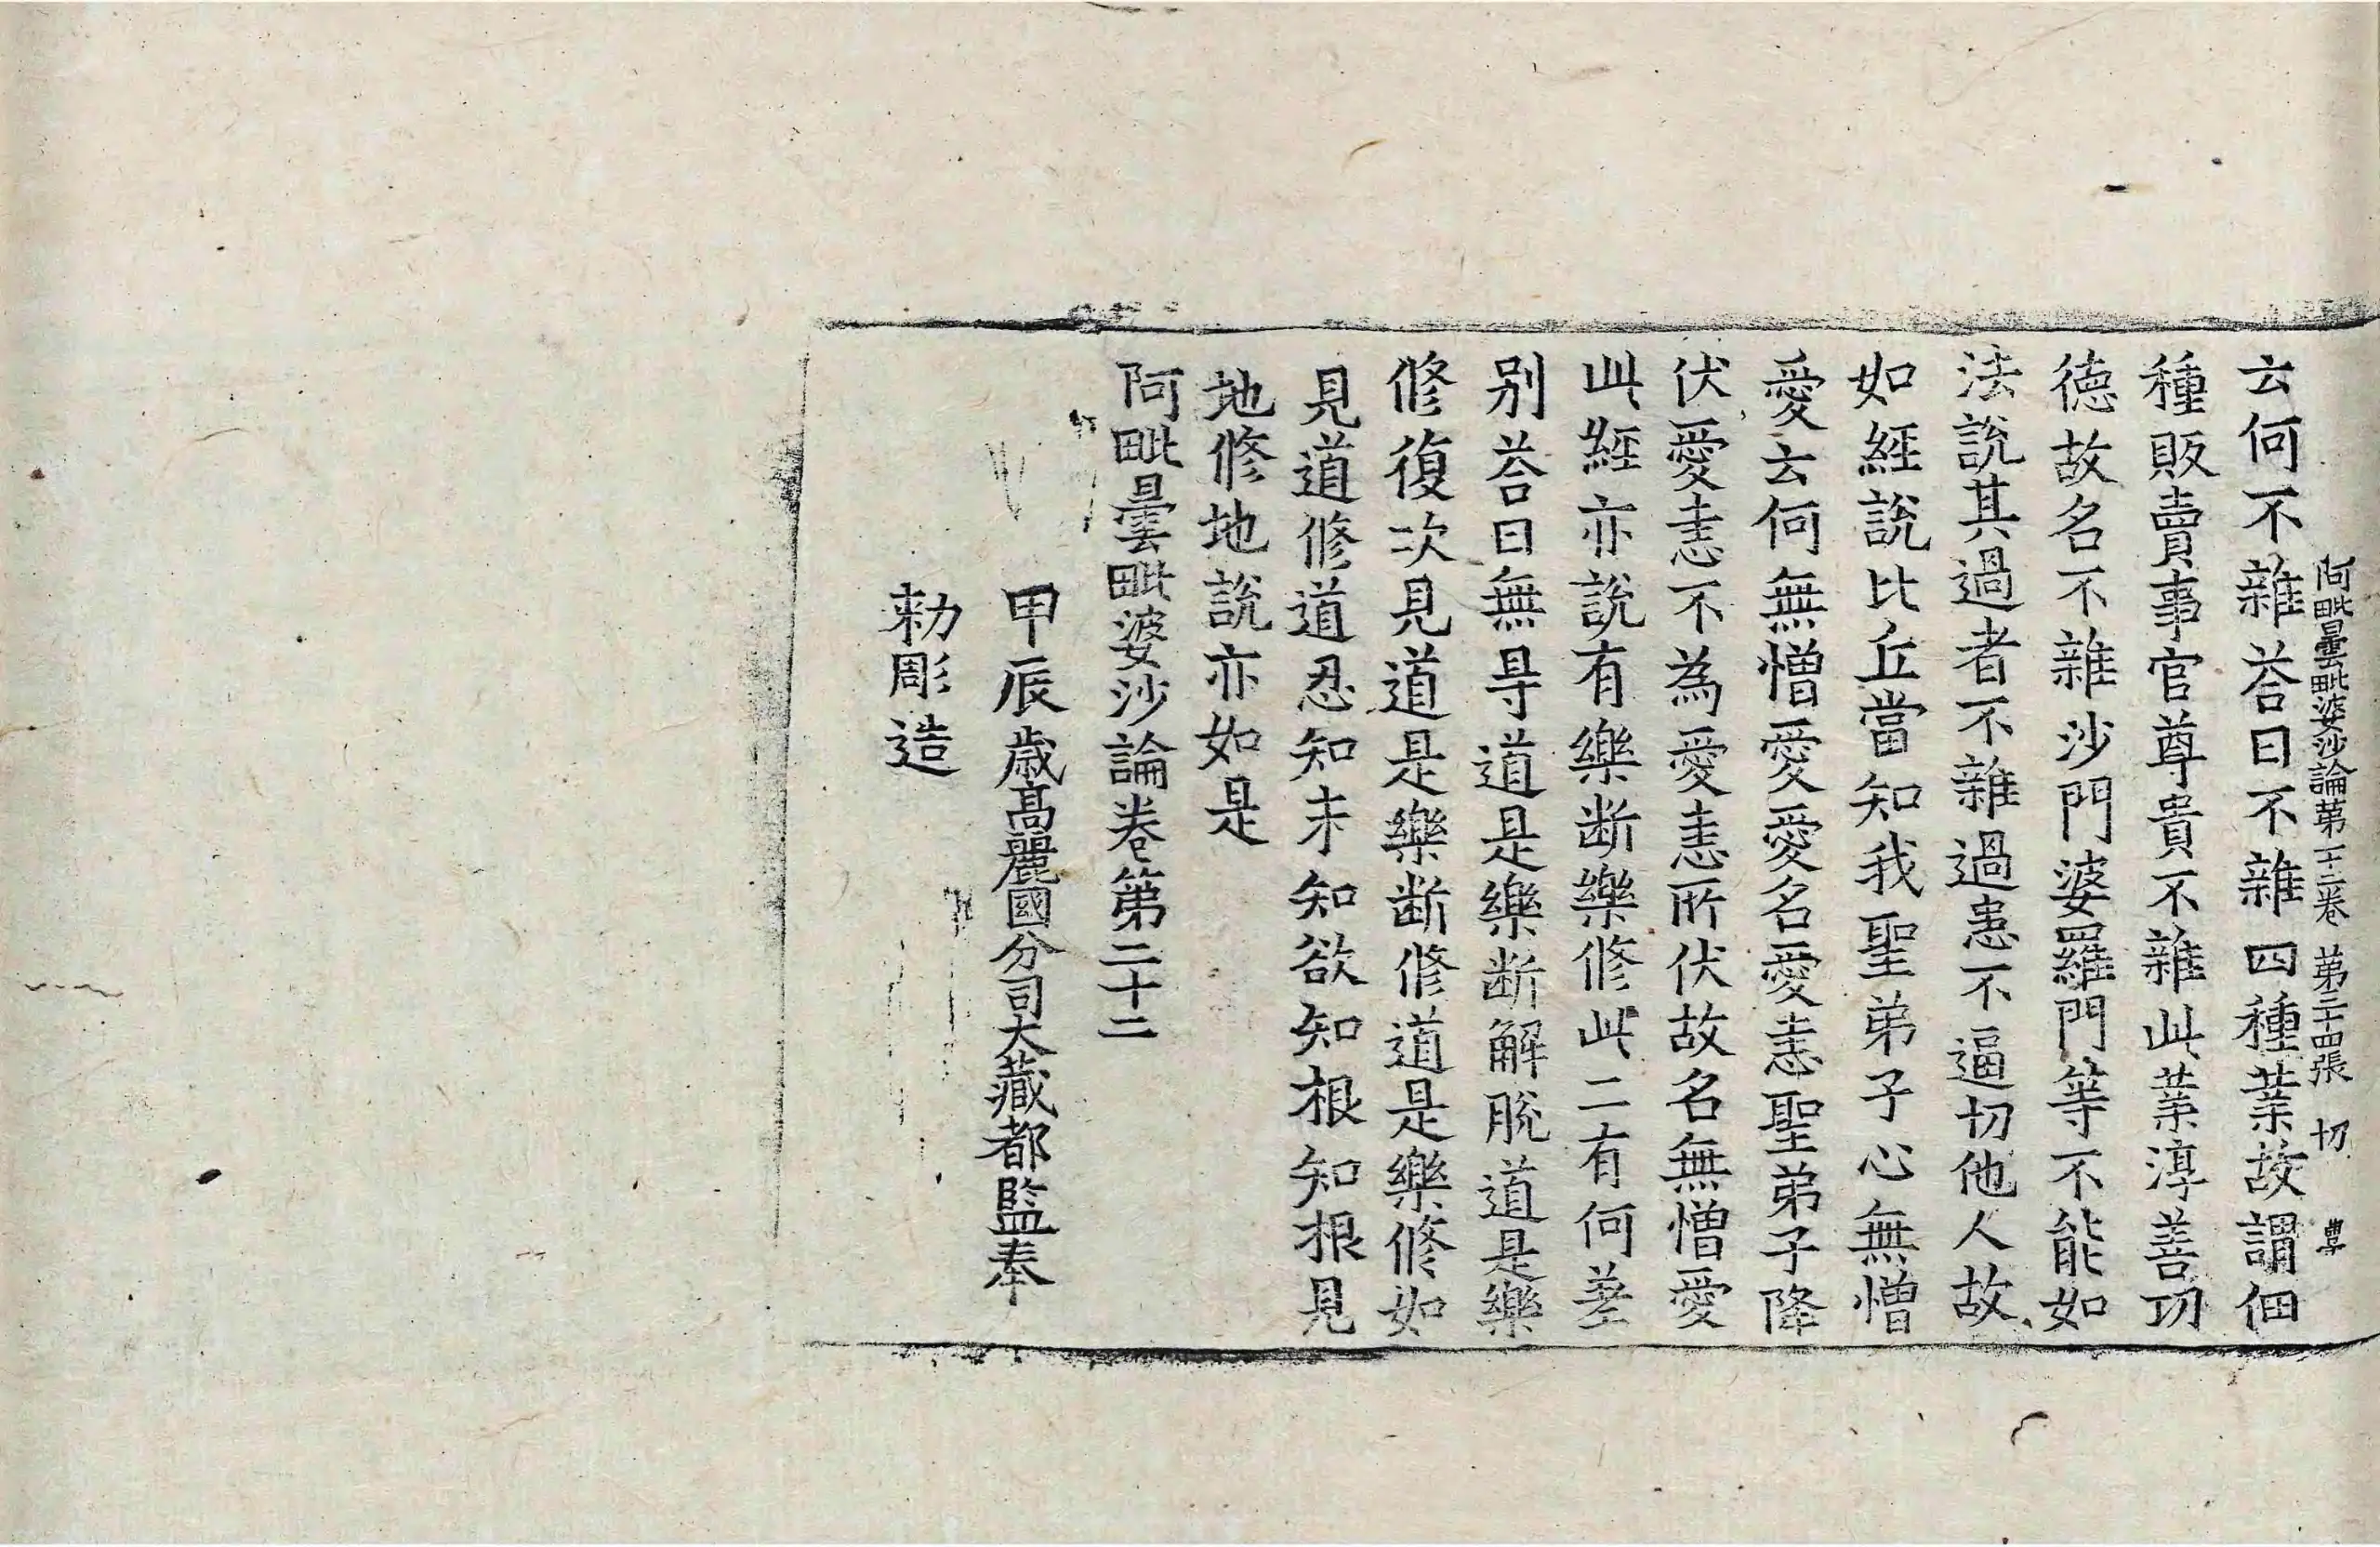 阿毗曇毗婆沙論第二十二卷 第二十四張 切
云何不雜荅曰不雜四種業故謂佃
種販賣事官尊貴不雜此業淳善功
德故名不雜沙門婆羅門等不能如
法說其過者不雜過患不逼切他人故
如經說比丘當知我聖弟子心無憎
愛云何無憎愛愛名愛恚聖弟子降
伏愛恚不為愛恚所伏故名無憎愛
此經亦說有樂断樂修此二有何差
别荅曰無㝵道是樂断解脫道是樂
修復次見道是樂断修道是樂修如
見道修道忍知未知欲知根知根見
地修地說亦如是
阿毗曇毗婆沙論卷第二十二
甲辰歲髙麗國分司大藏都監奉
勑彫造